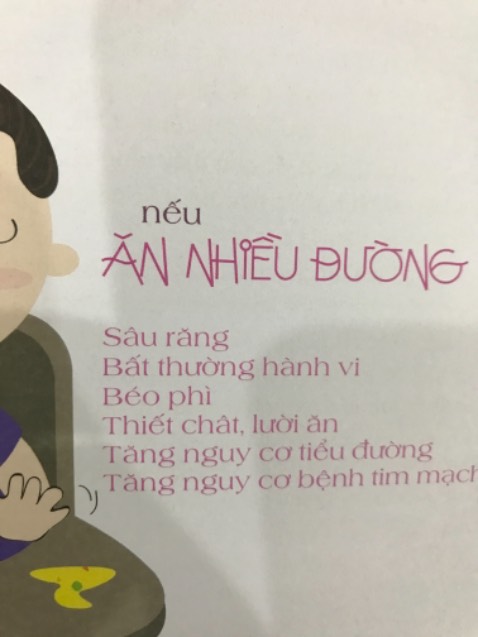 nếu
ĂN NHIỀU ĐƯỜNG
Sâu răng
Bất thường hành vi
Béo phì
Thiết chât, lười ăn
Tăng nguy cơ tiểu đường
Tăng nguy cơ bệnh tim mạch